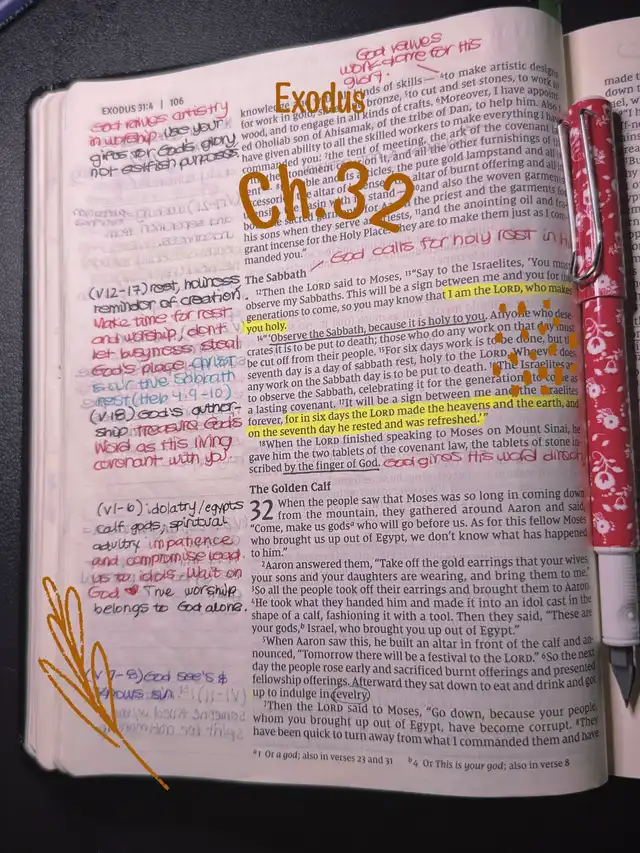 EXODUS 31:4 | 106
God values
work done for His
glory.
Exodus
Ch.32
God values artistry
in worship. use your
gifts for God's glory,
not selfish purposes.
(v12-17) rest, holiness
reminder of creation.
Make time for rest
and worship/don't
let busyness steal
God's place. Christ
is our true Sabbath
rest (Heb 4:9-10)
(v.18) God's author-
ship. Treasure God's
Word as His living
covenant with you.
(v1-6) idolatry/egypts
calf gods, spiritual
adultry impatience
and compromise lead
us to idols. Wait on
God ♥ True worship
belongs to God alone.
(v7-8) God see's &
knows sin.
kinds of skills— ⁴to make artistic designs
for work in gold, bronze, ⁵to cut and set stones, to work in
wood, and to engage in all kinds of crafts. ⁶Moreover, I have appoint
ed Oholiab son of Ahisamak, of the tribe of Dan, to help him. Also I
have given ability to all the skilled workers to make everything I have
commanded you: ⁷the tent of meeting, the ark of the covenant
on it, and all the other furnishings of the
the pure gold lampstand and all
altar of burnt offering and all
stand— ¹⁰and also the woven garments,
the priest and the garments for
his sons when they serve as priests, ¹¹and the anointing oil and fra-
grant incense for the Holy Place. They are to make them just as I com-
manded you."
God calls for holy rest in
The Sabbath
¹²Then the LORD said to Moses, ¹³"Say to the Israelites, 'You must
observe my Sabbaths. This will be a sign between me and you for the
generations to come, so you may know that I am the LORD, who makes
you holy.
¹⁴"'Observe the Sabbath, because it is holy to you. Anyone who dese-
crates it is to be put to death; those who do any work on that day must
be cut off from their people. ¹⁵For six days work is to be done, but the
seventh day is a day of sabbath rest, holy to the LORD. Whoever does
any work on the Sabbath day is to be put to death. ¹⁶The Israelites are
to observe the Sabbath, celebrating it for the generations to come as
a lasting covenant. ¹⁷It will be a sign between me and the Israelites
forever, for in six days the LORD made the heavens and the earth, and
on the seventh day he rested and was refreshed.'"
¹⁸When the LORD finished speaking to Moses on Mount Sinai, he
gave him the two tablets of the covenant law, the tablets of stone in-
scribed by the finger of God. God gives His word directly
The Golden Calf
32 When the people saw that Moses was so long in coming down
from the mountain, they gathered around Aaron and said,
"Come, make us godsᵃ who will go before us. As for this fellow Moses
who brought us up out of Egypt, we don't know what has happened
to him."
²Aaron answered them, "Take off the gold earrings that your wives,
your sons and your daughters are wearing, and bring them to me."
³So all the people took off their earrings and brought them to Aaron.
⁴He took what they handed him and made it into an idol cast in the
shape of a calf, fashioning it with a tool. Then they said, "These are
your gods,ᵇ Israel, who brought you up out of Egypt."
⁵When Aaron saw this, he built an altar in front of the calf and an-
nounced, "Tomorrow there will be a festival to the LORD." ⁶So the next
day the people rose early and sacrificed burnt offerings and presented
fellowship offerings. Afterward they sat down to eat and drink and got
up to indulge in revelry.
⁷Then the LORD said to Moses, "Go down, because your people,
whom you brought up out of Egypt, have become corrupt. ⁸They
have been quick to turn away from what I commanded them and have
ᵃ1 Or a god; also in verses 23 and 31 ᵇ4 Or This is your god; also in verse 8
made
down t